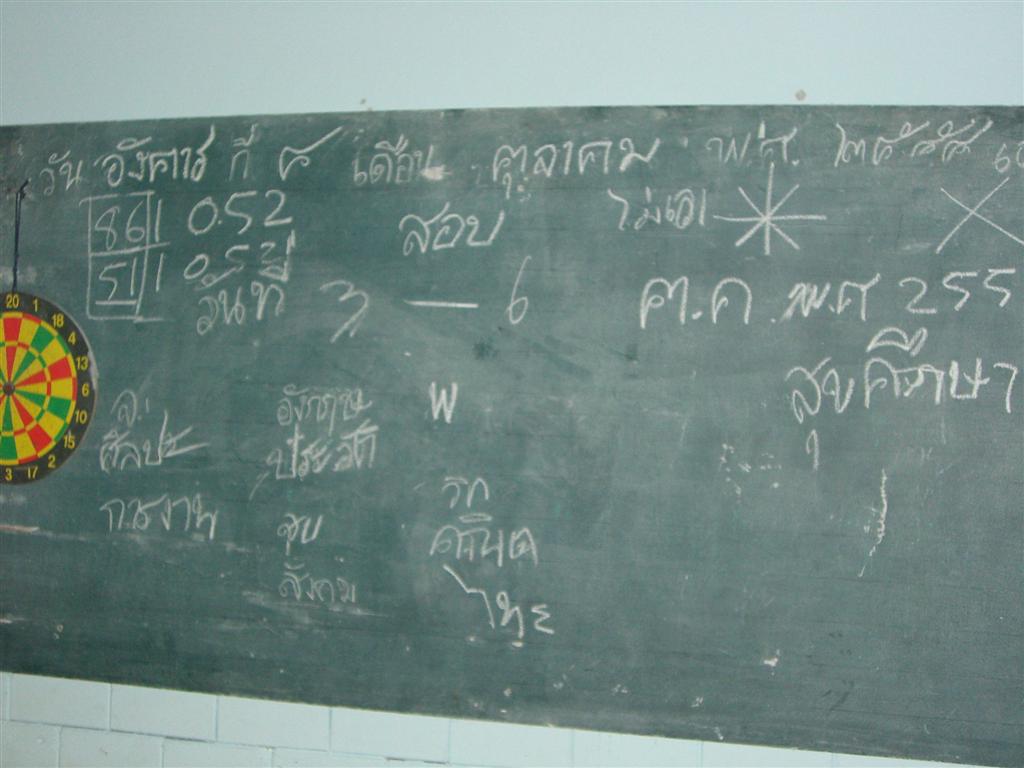 วัน อังคาร ที่ ๔ เดือน ตุลาคม พ.ศ. ๒๕๕๕
861 0.52
511 0.52
สอบ
ไม่เอา
วันที่ 3 — 6 ต.ค. พ.ศ 255
สุขศึกษา
อังกฤษ พ
ศิลปะ ประวัติ
วิท
การงาน สุข
คณิต
สังคม
ไทย
20 1 18 4 13 6 10 15 2 17 3